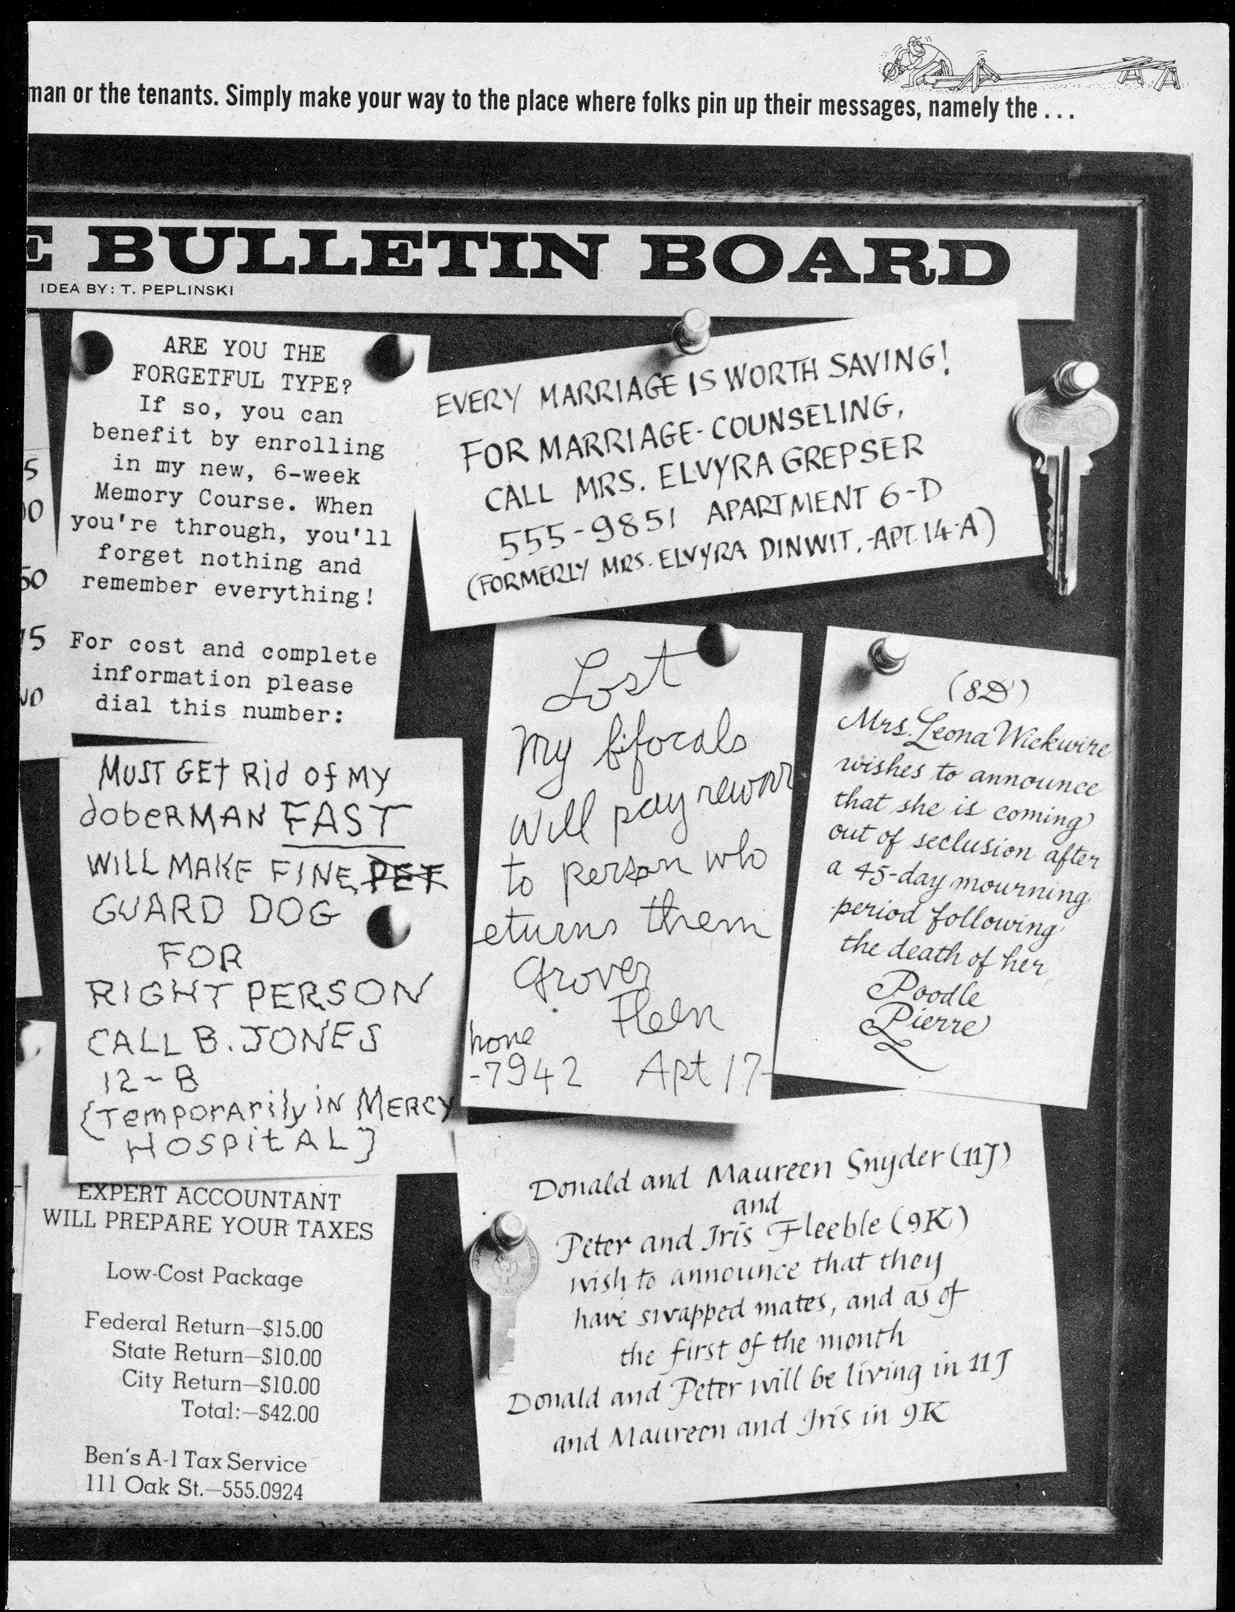 man or the tenants. Simply make your way to the place where folks pin up their messages, namely the . . .
E BULLETIN BOARD
IDEA BY: T. PEPLINSKI
5
00
50
75
ARE YOU THE
FORGETFUL TYPE?
If so, you can
benefit by enrolling
in my new, 6-week
Memory Course. When
you're through, you'll
forget nothing and
remember everything!
For cost and complete
information please
dial this number:
EVERY MARRIAGE IS WORTH SAVING!
FOR MARRIAGE-COUNSELING,
CALL MRS. ELVYRA GREPSER
555-9851 APARTMENT 6-D
(FORMERLY MRS. ELVYRA DINWIT, -APT. 14-A)
MUST GEt Rid of MY
dobeRMAN FAST
WILL MAKE FINE PET
GUARD DOG
FOR
RIGHT PERSON
CALL B. JONES
12-B
(TemporArily iN MERCY
HOSPitAL)
Lost
my bifocals
will pay rewar
to person who
eturns them
Grover
Fleen
hone
-7942 Apt 17-
(8D)
Mrs. Leona Wickwire
wishes to announce
that she is coming
out of seclusion after
a 45-day mourning
period following
the death of her
Poodle
Pierre
EXPERT ACCOUNTANT
WILL PREPARE YOUR TAXES
Low-Cost Package
Federal Return—$15.00
State Return—$10.00
City Return—$10.00
Total:—$42.00
Ben's A-1 Tax Service
111 Oak St.—555.0924
Donald and Maureen Snyder (11J)
and
Peter and Iris Fleeble (9K)
wish to announce that they
have swapped mates, and as of
the first of the month
Donald and Peter will be living in 11J
and Maureen and Iris in 9K